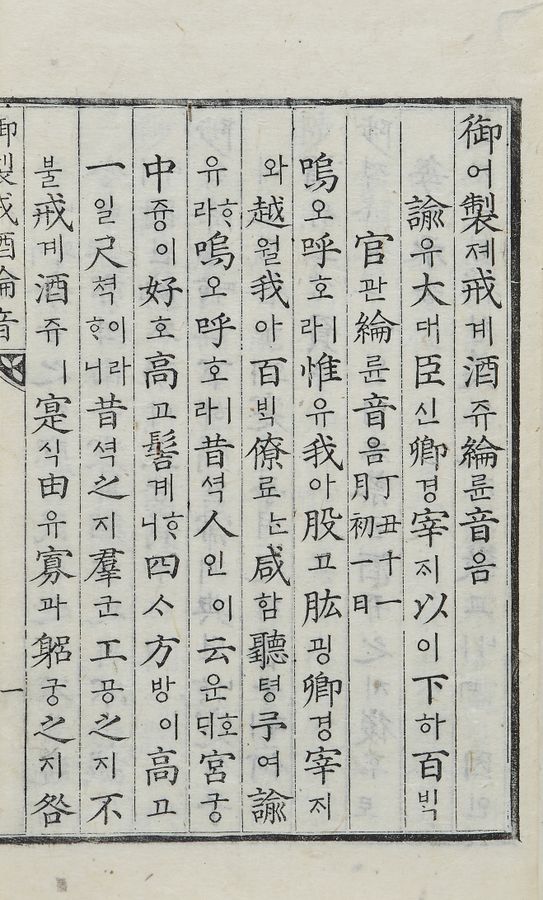 御어製졔戒계酒쥬綸륜音음
諭유大대臣신卿경宰ᄌᆡ以이下하百ᄇᆡᆨ
官관綸륜音음丁丑十一
月初一日
嗚오呼호ㅣ라惟유我아股고肱굉卿경宰ᄌᆡ
와越월我아百ᄇᆡᆨ僚료ᄂᆞᆫ咸함聽텽予여諭
유ᄒᆞ라嗚오呼호ㅣ라昔셕人인이云운호ᄃᆡ宮궁
中즁이好호高고髻계ᄒᆞ니四ᄉᆞ方방이高고
一일尺쳑이라ᄒᆞ니昔셕之지羣군工공之지不
불戒계酒쥬ㅣ寔식由유寡과躳궁之지咎
御製戒酒綸音 一